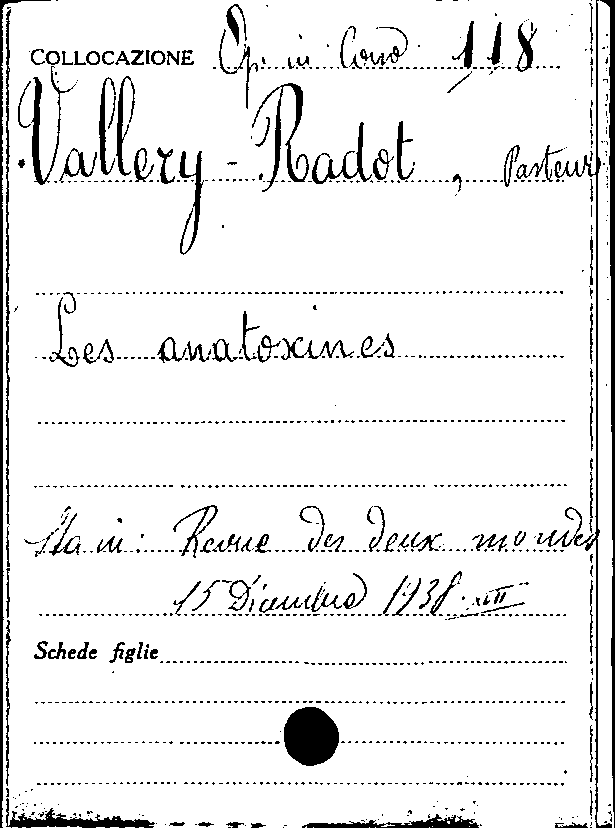 COLLOCAZIONE Op. in Cons 118
Vallery-Radot, Pasteur
Les anatoxines
Sta in: Revue des deux mondes
15 Dicembre 1938. XVII
Schede figlie